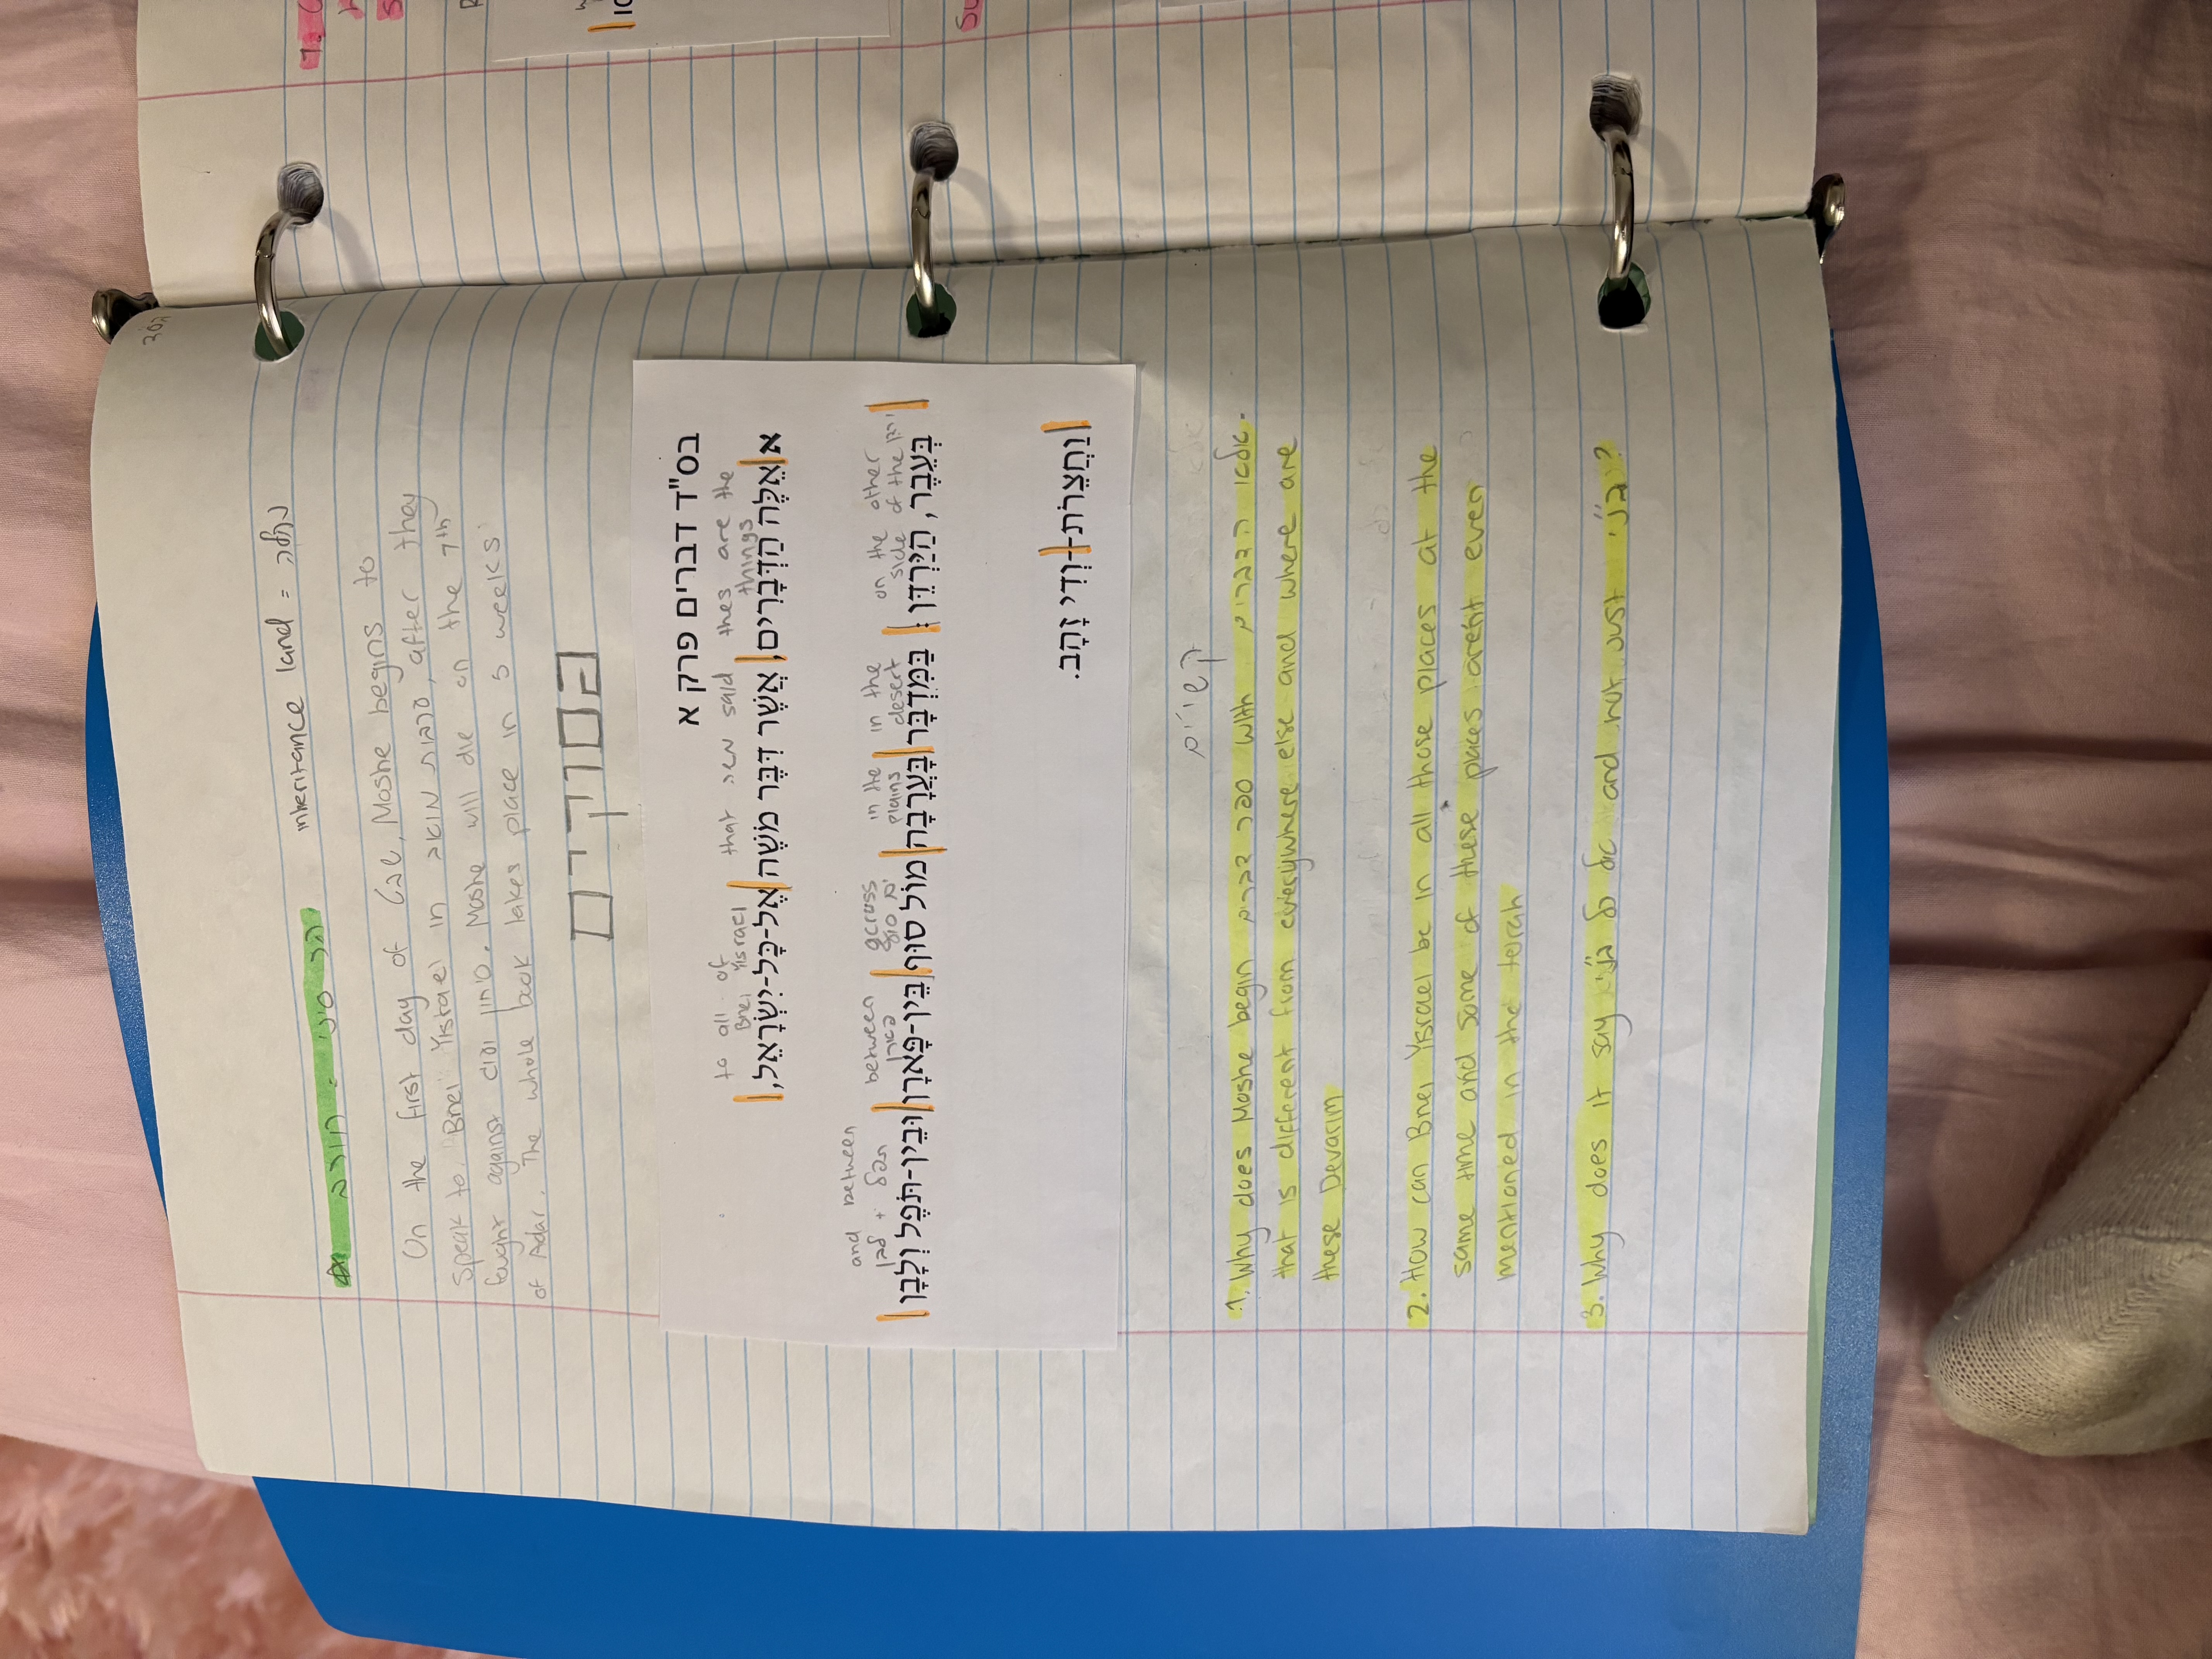 בסד
inheritance land = נחלה
הר סיני = חורב
On the first day of שבט, Moshe begins to
speak to Bnei Yisrael in ערבות מואב, after they
fought against סיחון and. Moshe will die on the 7th
of Adar. The whole book takes place in 5 weeks.
הסוקרים
בס"ד דברים פרק א
to all of Bnei Yisrael that משה said thes are the things
א אֵלֶּה הַדְּבָרִים, אֲשֶׁר דִּבֶּר מֹשֶׁה אֶל-כָּל-יִשְׂרָאֵל,
and between תפל + לבן between פארן across ים סוף in the plains in the desert on the other side of the ירדן
בְּעֵבֶר, הַיַּרְדֵּן: בַּמִּדְבָּר בָּעֲרָבָה מוֹל סוּף בֵּין-פָּארָן וּבֵין-תֹּפֶל וְלָבָן
וַחֲצֵרֹת--וְדִי זָהָב.
קשיים
1. Why does Moshe begin ספר דברים with אלה הדברים
that is different from everywhere else and where are
these Devarim
2. How can Bnei Yisrael be in all those places at the
same time and some of these places arent even
mentioned in the torah
3. Why does it say כל בני and not just בני?